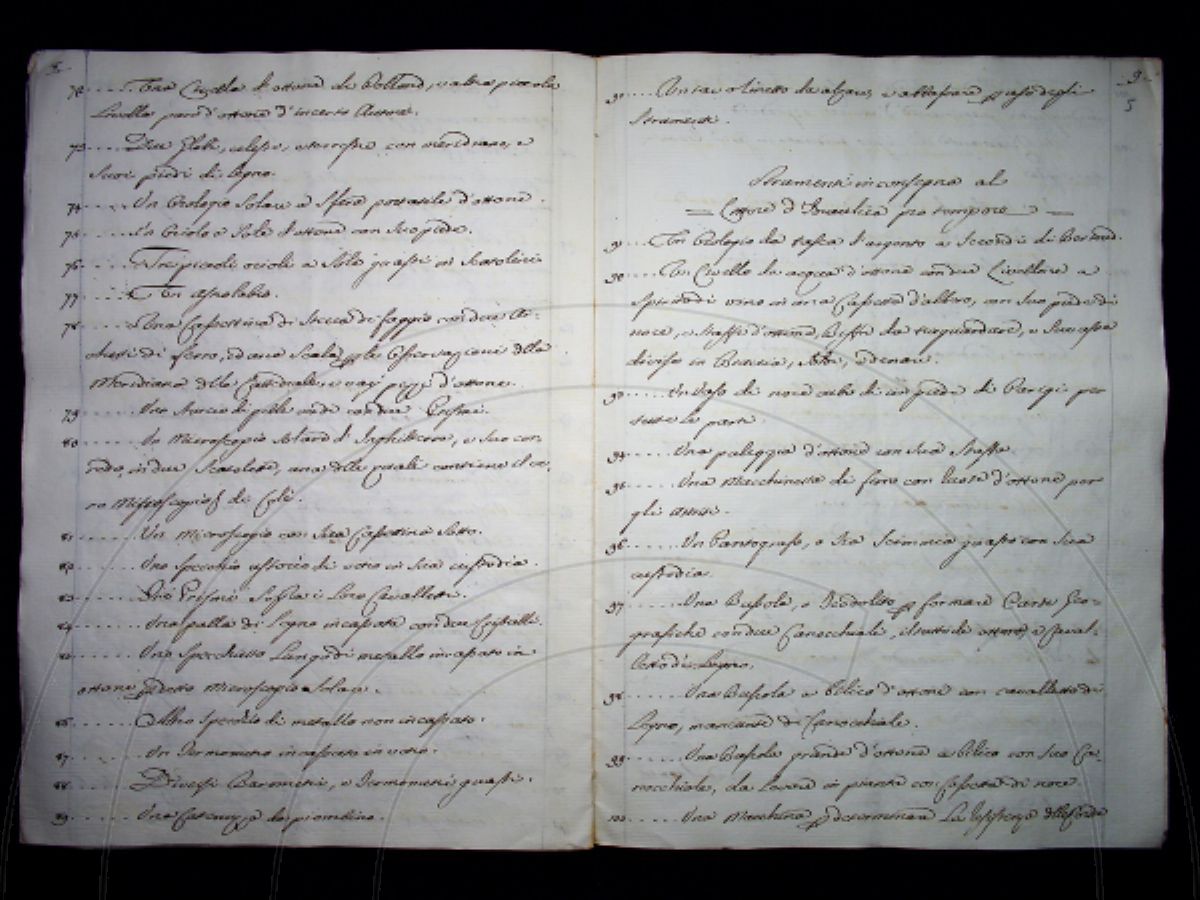 8
72 .... Un Livello d'ottone di Holland, e altro piccolo
Livello pure d'ottone d'incerto Autore.
73 .... Due Globi, celeste, e terrestre con meridiano, e
suoi piedi di legno.
74 .... Un Orologio Solare a Sfera portatile d'ottone.
75 .... Un Oriolo a Sole d'ottone con suo piede.
76 .... Tre piccoli orioli a Sole guasti in Scatolini
77 .... Un Astrolabio.
78 .... Una Cassettina di di faggio con due
di ferro, ed una Scala per le Osservazioni della
Meridiana della Cattedrale, e varj pezzi d'ottone.
79 .... Uno Astuccio di pelle con due Prismi.
80 .... Un Microscopio Solare d'Inghilterra, e suo cor-
redo, in due Scatolette, una delle quali contiene il ve-
ro Microscopio di
81 .... Un Microscopio con sua Cassettina sotto.
82 .... Uno specchio ustorio di vetro in sua custodia.
83 .... Due Prismi Sopra i loro Cavalletti.
84 .... Una palla di Legno incassata con due Cristalli.
85 .... Uno Specchietto Lungo di metallo incassato in
ottone per detto Microscopio Solare.
86 .... Altro Specchio di metallo non incassato.
87 .... Un Termometro incassato in vetro.
88 .... Diversi Barometri, e Termometri guasti.
89 .... Una da piombino.
9
5
90 .... Un da alzare, e abbassare per uso degli
Strumenti.
Strumenti in consegna al
= Lettore d'Idraulica pro tempore =
91 .... Un Orologio da tasca d'argento a Secondi di
92 .... Un Livello da acqua d'ottone con due Livellette a
Spirito di vino in una Cassetta d'albero, con suo piede di
noce, e Staffe d'ottone, Biffe da traguardare, e sua asta
divisa in Braccia, soldi, e denari.
93 .... Un Vaso di noce cubo di un piede di Parigi per
tutte le parti.
94 .... Una puleggia d'ottone con sua Staffa.
95 .... Una Macchinetta di ferro con Ruote d'ottone per
gli attriti.
96 .... Un Pantografo, o sia Scimmia guasto con sua
custodia.
97 .... Una Bussola, o Teodolito per formare Carte Geo-
grafiche con due Canocchiale, il tutto di ottone, e Caval-
letto di Legno.
98 .... Una Bussola a bilico d'ottone con cavalletto di
Legno, mancante di Canocchiale.
99 .... Una Bussola grande d'ottone a bilico con suo Ca-
nocchiale, da Levare in pianta con Cassetta di noce
100 .... Una Macchina per determinare la resistenza delle Corde